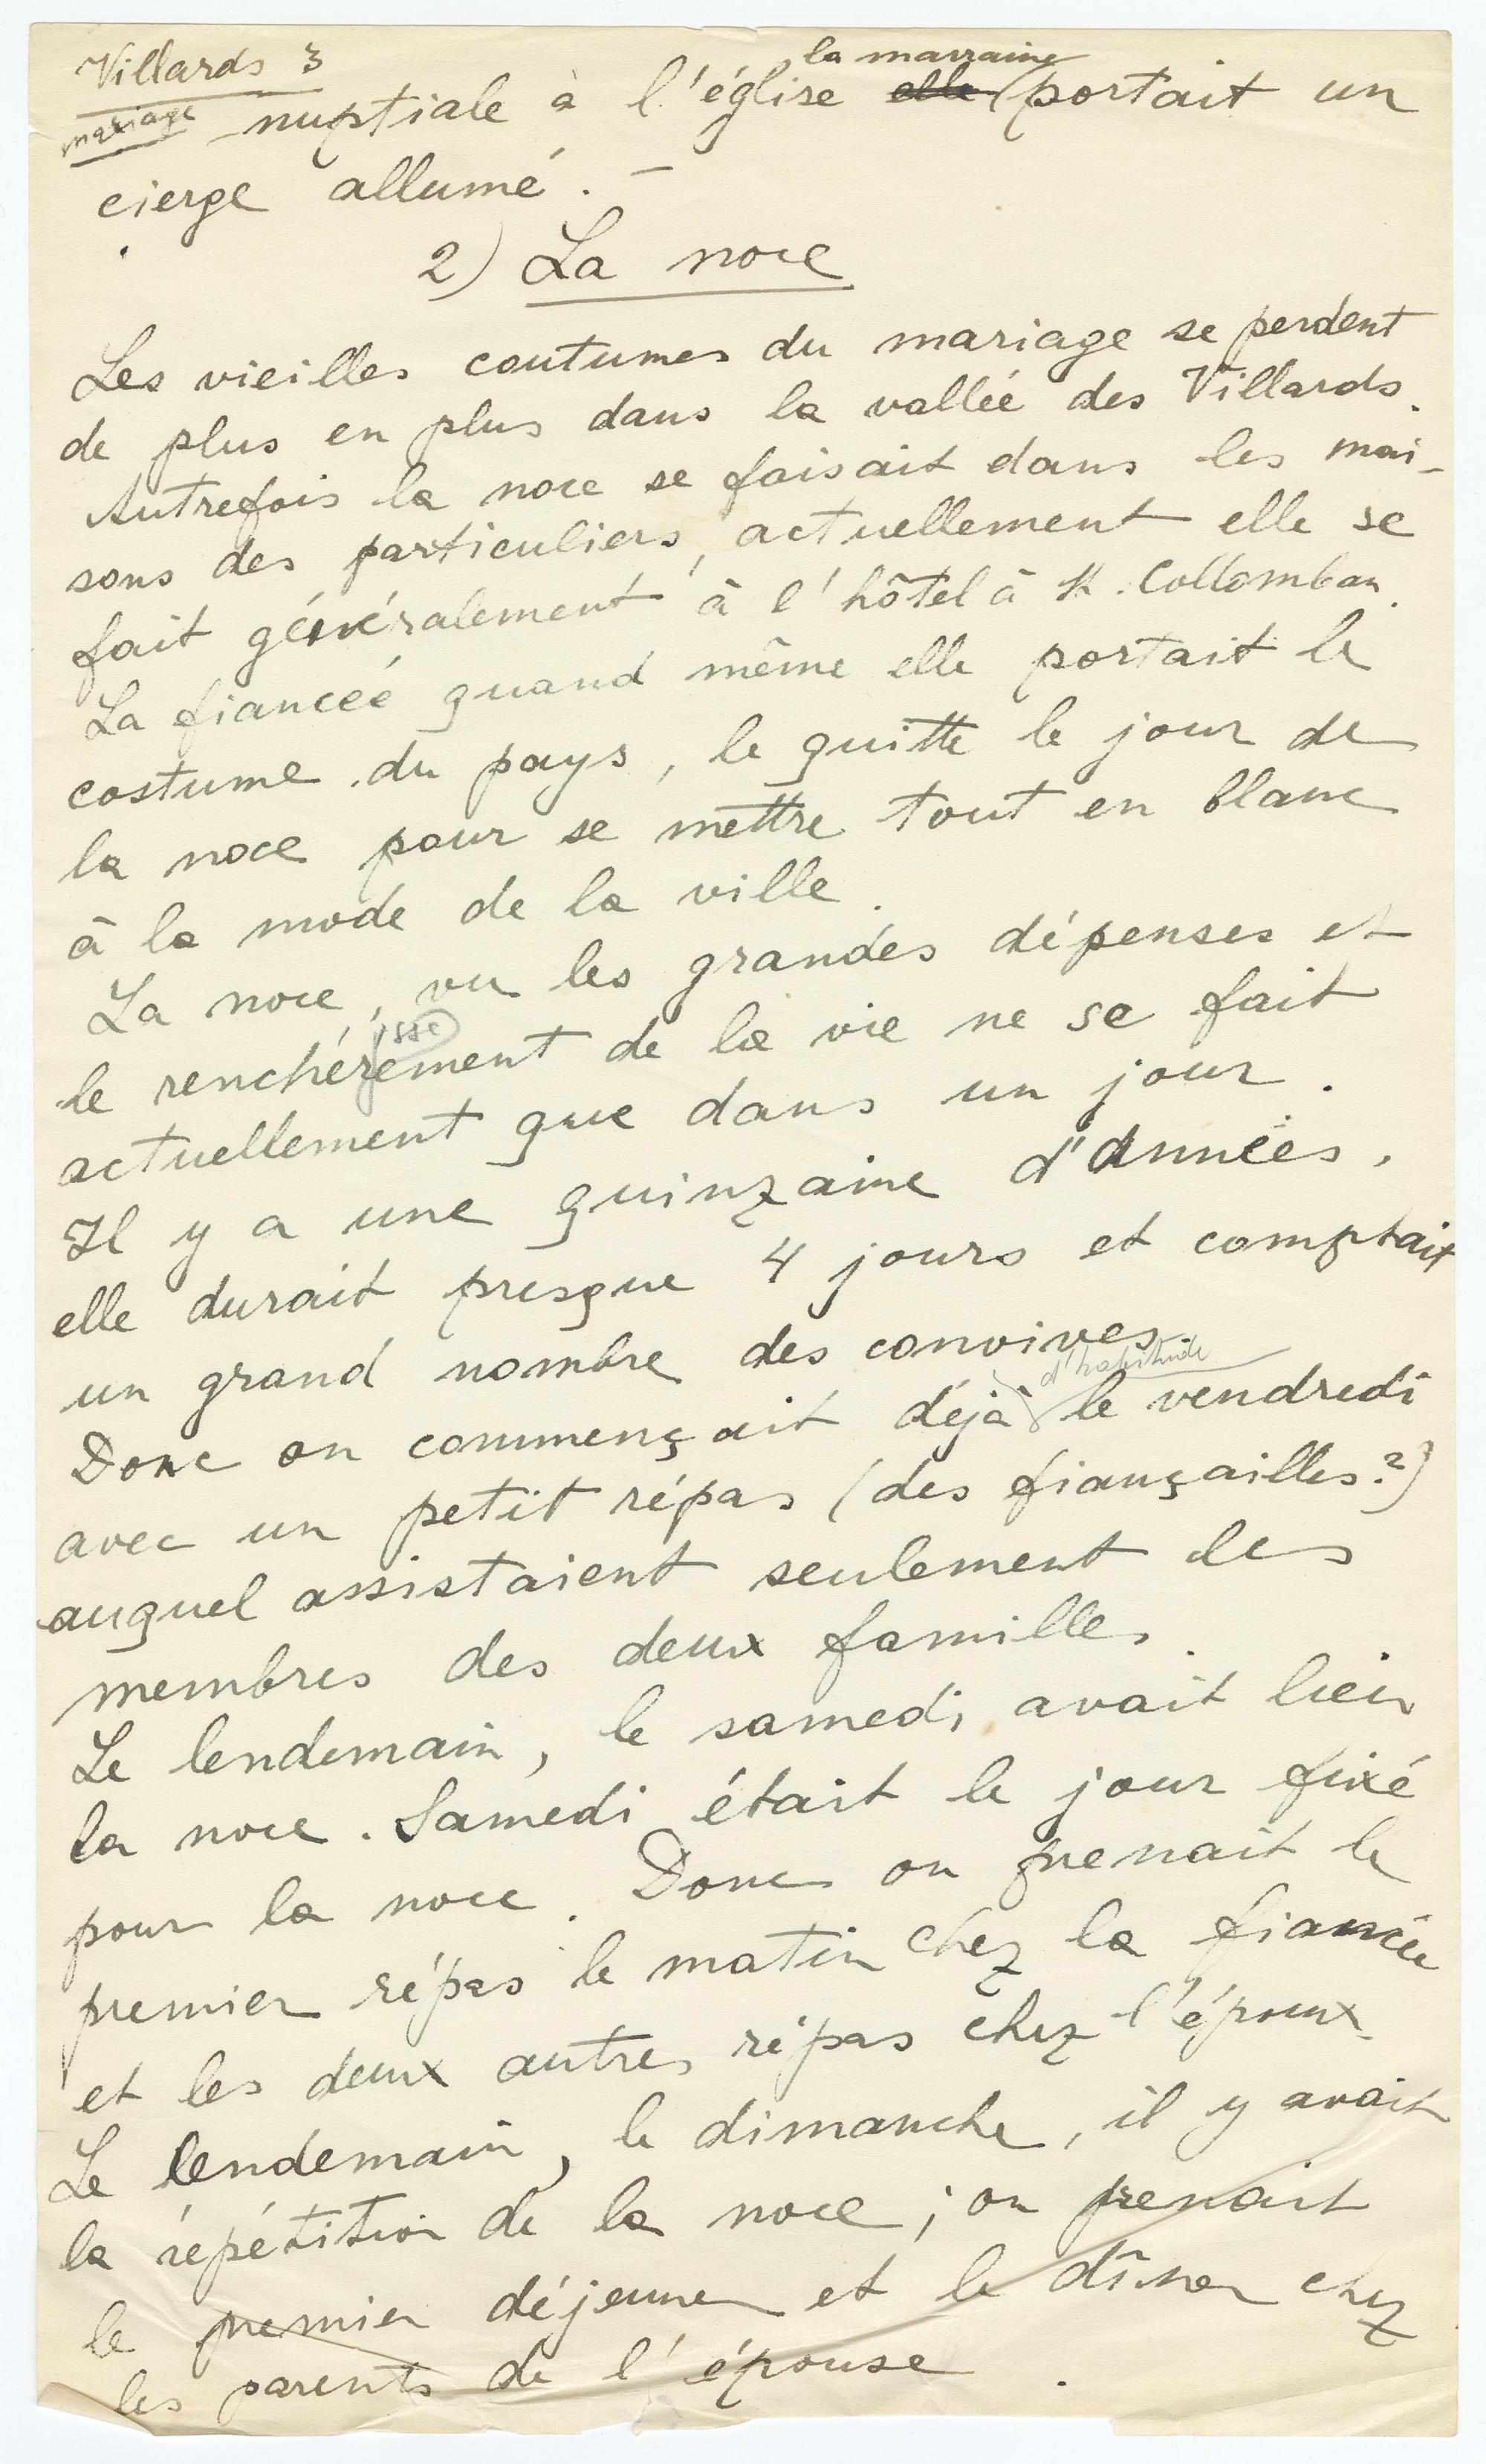 Villards 3
mariage
la marraine
nuptiale à l'église elle portait un
cierge allumé. –
2) La noce
Les vieilles coutumes du mariage se perdent
de plus en plus dans la valleé des Villards.
Autrefois la noce se faisait dans les mai-
sons des particuliers, actuellement elle se
fait généralement à l'hôtel à St. Collomban.
La fianceé quand même elle portait le
costume du pays, le quitte le jour de
la noce pour se mettre tout en blanc
à la mode de la ville.
La noce, vu les grandes dépenses et
sse
le renchérement de la vie ne se fait
actuellement que dans un jour.
Il y a une quinzaine d'années,
elle durait presque 4 jours et comptait
un grand nombre des convives.
d'habitude
Donc on commençait déjà le vendredi
avec un petit répas (des fiançailles?)
auquel assistaient seulement des
membres des deux familles.
Le lendemain, le samedi avait lieu
la noce. Samedi était le jour fixé
pour la noce. Donc on prenait le
premier répas le matin chez la fiancée
et les deux autres répas chez l'époux.
Le lendemain, le dimanche, il y avait
la répétition de la noce; on prenait
le premier déjeuner et le dîner chez
les parents de l'épouse.